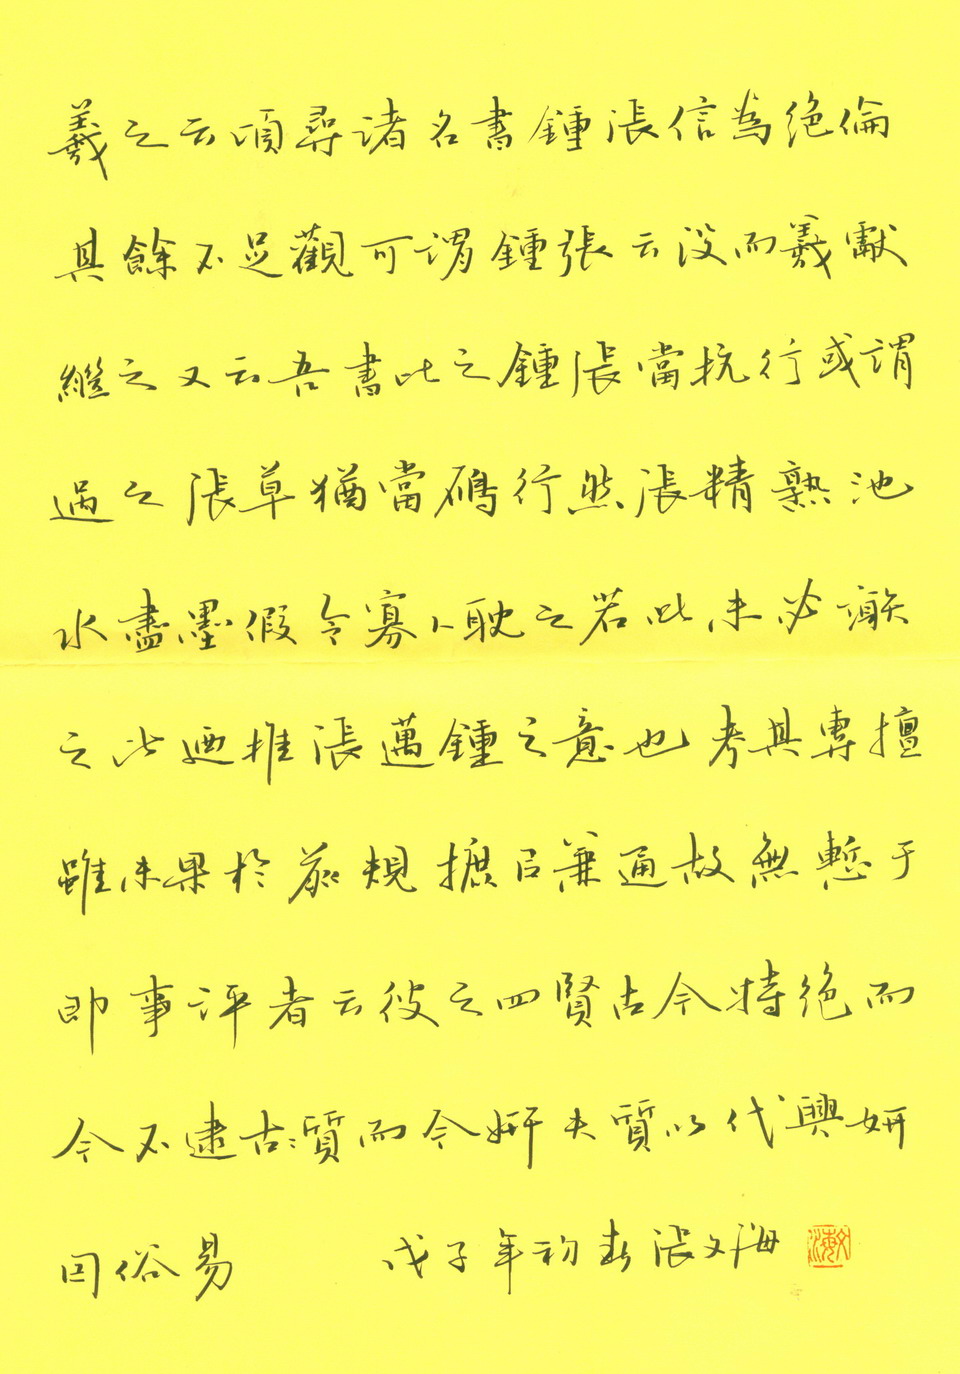 羲之云頃尋諸名書鍾張信為絕倫
其餘不足觀可謂鍾張云沒而羲獻
繼之又云吾書比之鍾張當抗行或謂
過之張草猶當鴈行然張精熟池
水盡墨假令寡人耽之若此未必謝
之此乃推張邁鍾之意也考其專擅
雖未果於前規摭以兼通故無慙于
即事評者云彼之四賢古今特絕而
今不逮古古質而今妍夫質以代興妍
因俗易 戊子年初春張文海